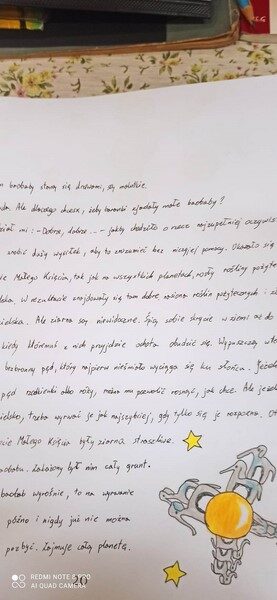 baobaby staną się drzewami, są malutkie.
Ale dlaczego chcesz, żeby baranki zjadały małe baobaby?
mi: - Dobrze, dobrze ... - jakby chodziło o rzecz najzupełniej oczywis
zrobić duży wysiłek, aby to zrozumieć bez niczyjej pomocy. Okazało się
Małego Księcia, tak jak na wszystkich planetach, rosły rośliny pożyte
W rezultacie znajdowały się tam dobre nasiona roślin pożytecznych i
Ale ziarna są niewidoczne. Śpią sobie skrycie w ziemi aż do
kiedy któremuś z nich przyjdzie ochota obudzić się. Wypuszcza wte
bezbronny pęd, który najpierw nieśmiało wyciąga się ku słońcu. Jeżeli
pęd rzodkiewki albo róży, można mu pozwolić rosnąć, jak chce. Ale jeżel
trzeba wyrwać je jak najszybciej, gdy tylko się je rozpozna. Ot
Małego Księcia były ziarna straszliwe.
baobabu. Zakażony był nim cały grunt.
baobab wyrośnie, to na wyrwanie
późno i nigdy już nie można
pozbyć. Zajmuje całą planetę.
REDMI NOTE 8 PRO
AI QUAD CAMERA